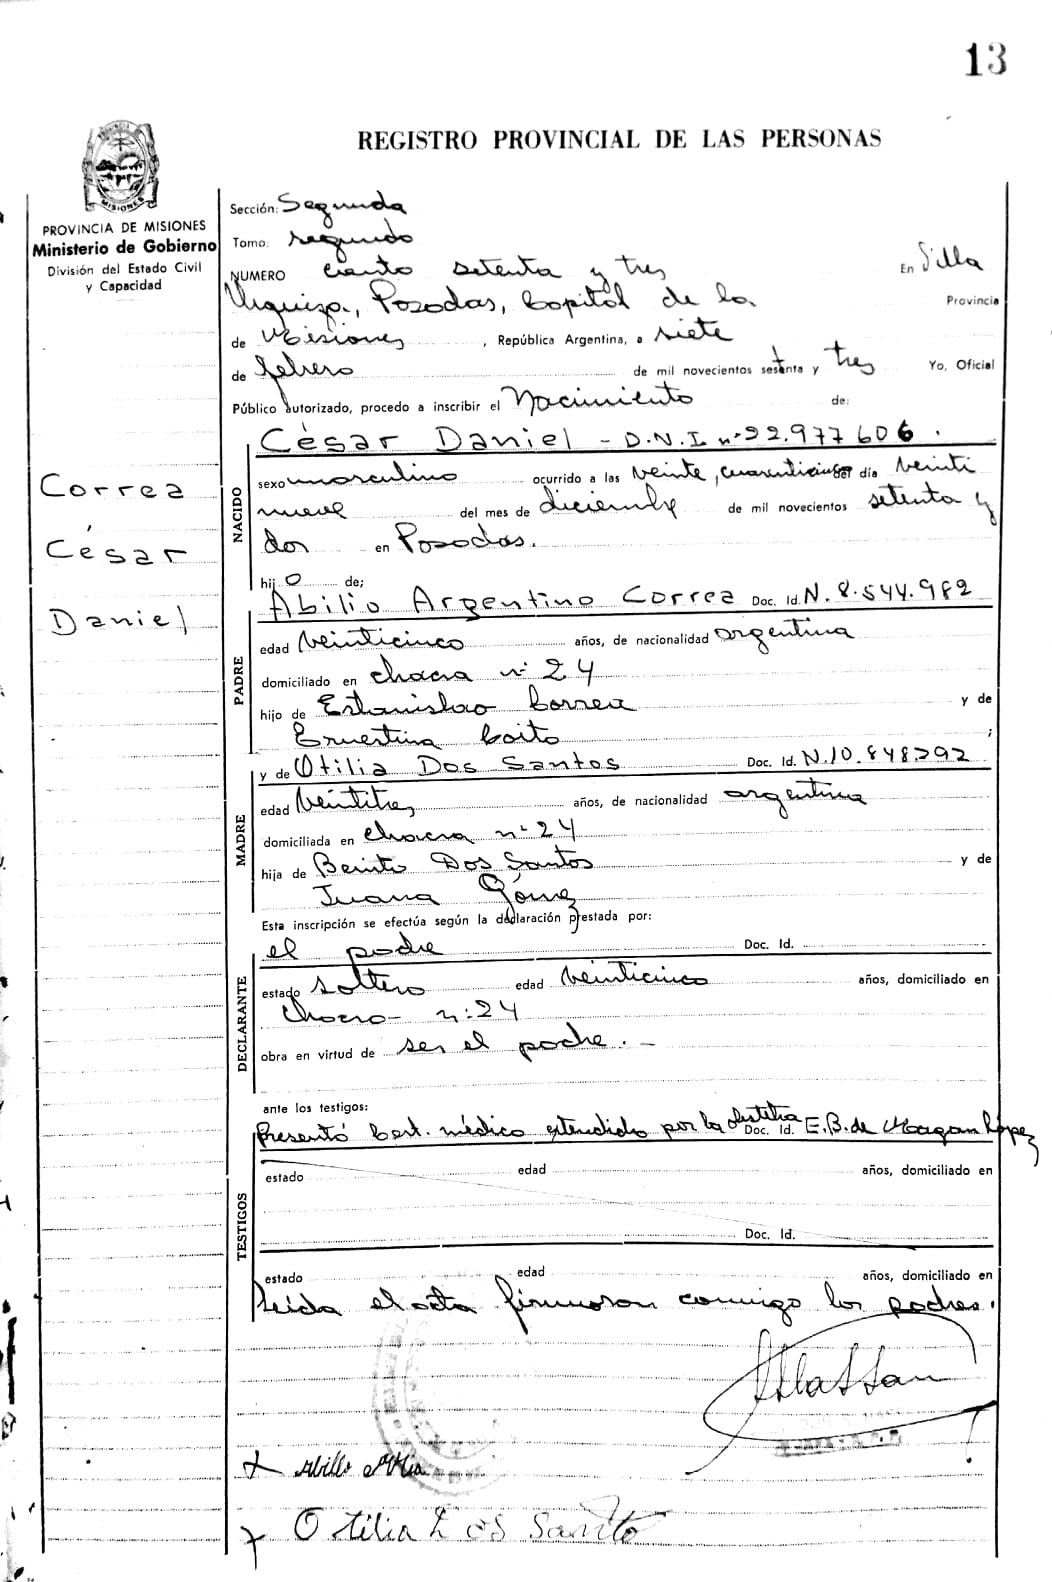 13
REGISTRO PROVINCIAL DE LAS PERSONAS
MISIONES
PROVINCIA DE MISIONES
Ministerio de Gobierno
División del Estado Civil
y Capacidad
Correa
César
Daniel
Sección: Segunda
Tomo: segundo
NUMERO ciento setenta y tres En Villa
Urquiza, Posadas, Capital de la Provincia
de Misiones, República Argentina, a siete
de febrero de mil novecientos setenta y tres Yo, Oficial
Público autorizado, procedo a inscribir el Nacimiento de:
NACIDO
César Daniel - D.N.I. nº 22.977606.
sexo masculino ocurrido a las veinte, cuarenticinco del día veinti
nueve del mes de diciembre de mil novecientos setenta y
dos en Posadas.
hijo de;
PADRE
Abilio Argentino Correa Doc. Id. N. 8.544.982
edad veinticinco años, de nacionalidad argentina
domiciliado en chacra nº 24
hijo de Estanislao Correa y de
Ernestina Coito;
MADRE
y de Otilia Dos Santos Doc. Id. N.10.848292
edad veintitres años, de nacionalidad argentina
domiciliada en chacra nº 24
hija de Benito Dos Santos y de
Juana Gómez
Esta inscripción se efectúa según la declaración prestada por:
DECLARANTE
el padre Doc. Id.
estado soltero edad veinticinco años, domiciliado en
chacra - n: 24
obra en virtud de ser el padre. -
ante los testigos:
TESTIGOS
Presentó Cert. médico extendido por la obstetra Doc. Id. E.B. de López
estado edad años, domiciliado en
Doc. Id.
estado edad años, domiciliado en
Leida el acta firmaron conmigo los padres.
Otilia Dos Santo